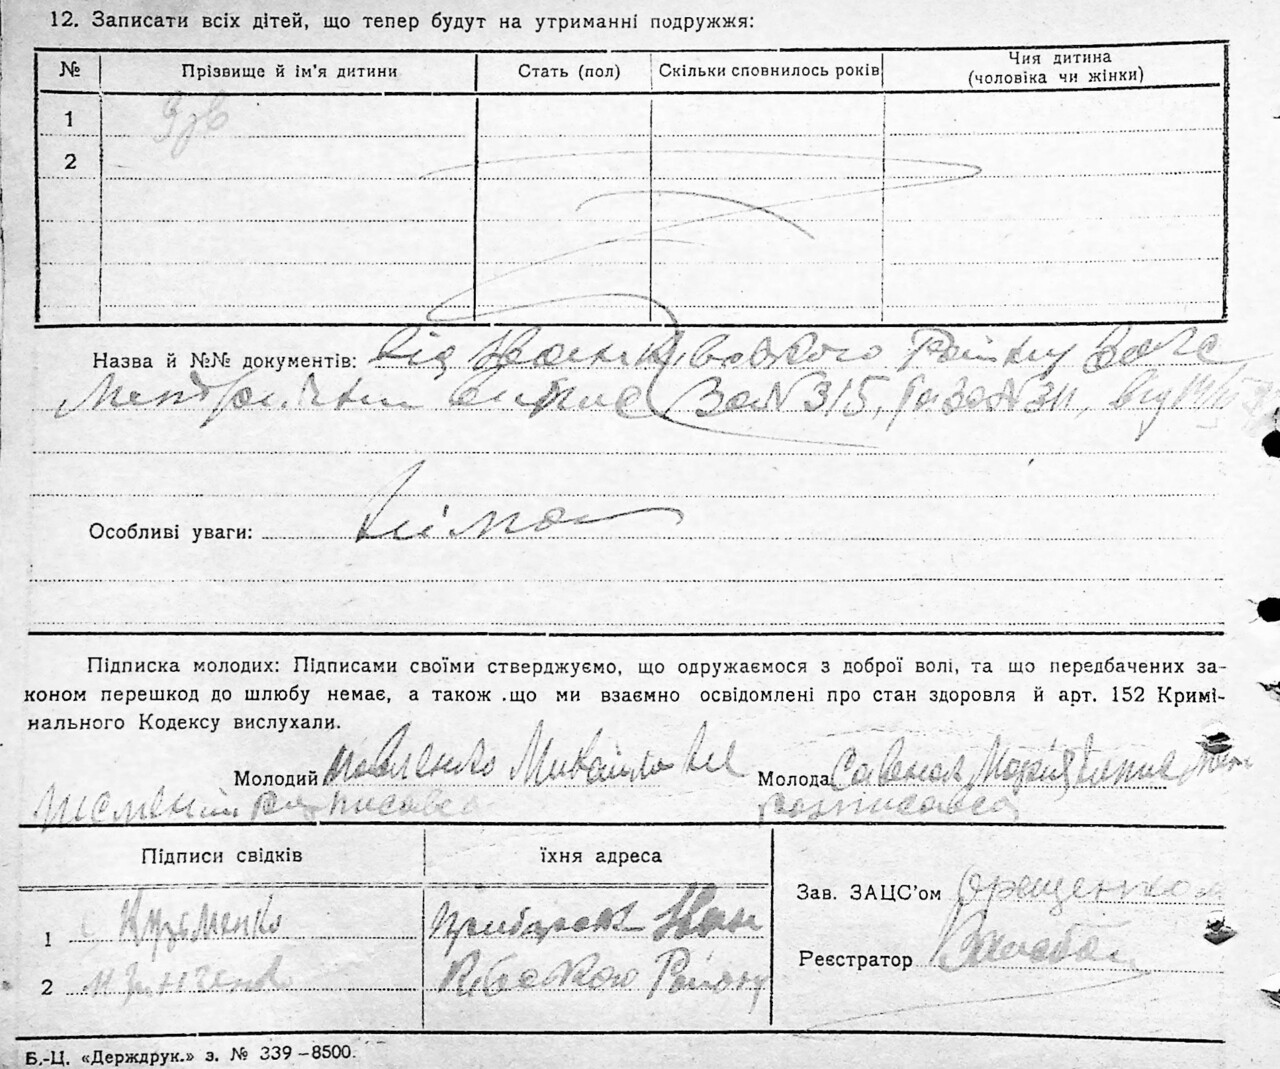 12. Записати всіх дітей, що тепер будут на утриманні подружжя:
№ Прізвище й ім'я дитини Стать (пол) Скільки сповнилось років Чия дитина
(чоловіка чи жінки)
1
2
Назва й №№ документів: від Району
за №315, та за №311, від
Особливі уваги: Нема
Підписка молодих: Підписами своїми стверджуємо, що одружаємося з доброї волі, та що передбачених за-
коном перешкод до шлюбу немає, а також .що ми взаємно освідомлені про стан здоровля й арт. 152 Кримі-
нального Кодексу вислухали.
Молодий Павленко Михайло не Молода Савенок Марія
письменній розписався розписався
Підписи свідків їхня адреса
Зав. ЗАЦС'ом
1 Кузьменко Прибірськ Іван
Реєстратор
2 ківського Району
Б.-Ц. «Держдрук.» з. № 339–8500.